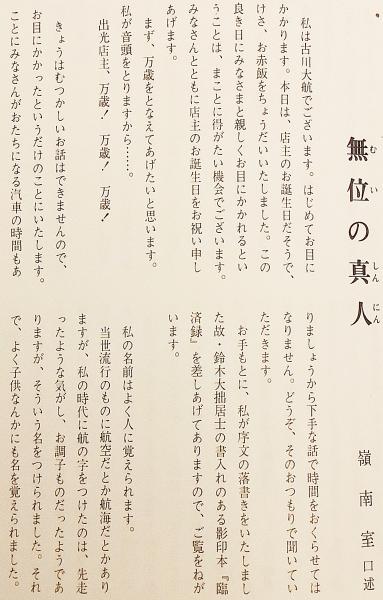 無位の真人
むいしんにん
嶺南室口述
私は古川大航でございます。はじめてお目に
かかります。本日は、店主のお誕生日だそうで、
けさ、お赤飯をちょうだいいたしました。この
良き日にみなさまと親しくお目にかかれるとい
うことは、まことに得がたい機会でございます。
みなさんとともに店主のお誕生日をお祝い申し
あげます。
まず、万歳をとなえてあげたいと思います。
私が音頭をとりますから……。
出光店主、万歳!万歳!万歳!
きょうはむつかしいお話はできませんので、
お目にかかったというだけのことにいたします。
ことにみなさんがおたちになる汽車の時間もあ
りましょうから下手な話で時間をおくらせては
なりません。どうぞ、そのおつもりで聞いてい
ただきます。
お手もとに、私が序文の落書きをいたしまし
た故・鈴木大拙居士の書入れのある影印本『臨
済録』を差しあげてありますので、ご覧をねが
います。
私の名前はよく人に覚えられます。
当世流行のものに航空だとか航海だとかあり
ますが、私の時代に航の字をつけたのは、先走
ったような気がし、お調子ものだったようであ
りますが、そういう名をつけられました。それ
で、よく子供なんかにも名を覚えられました。